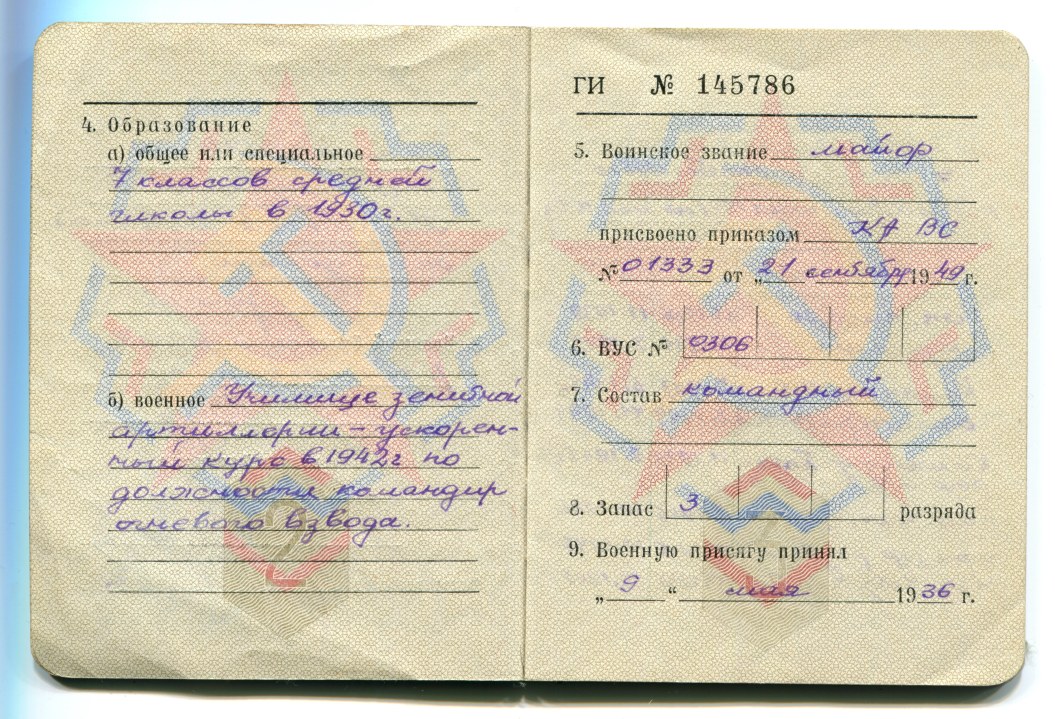 4. Образование
а) общее или специальное
7 классов средней
школы в 1930г.
б) военное Училище зенитной
артиллерии - ускорен-
ный курс в 1942г по
должности командир
огневого взвода.
ГИ № 145786
5. Воинское звание майор
присвоено приказом КА ВС
№ 01333 от „21 сентября 1949 г.
6. ВУС № 0306
7. Состав командный
8. Запас 3 разряда
9. Военную присягу принял
„ 9 “ мая 1936 г.